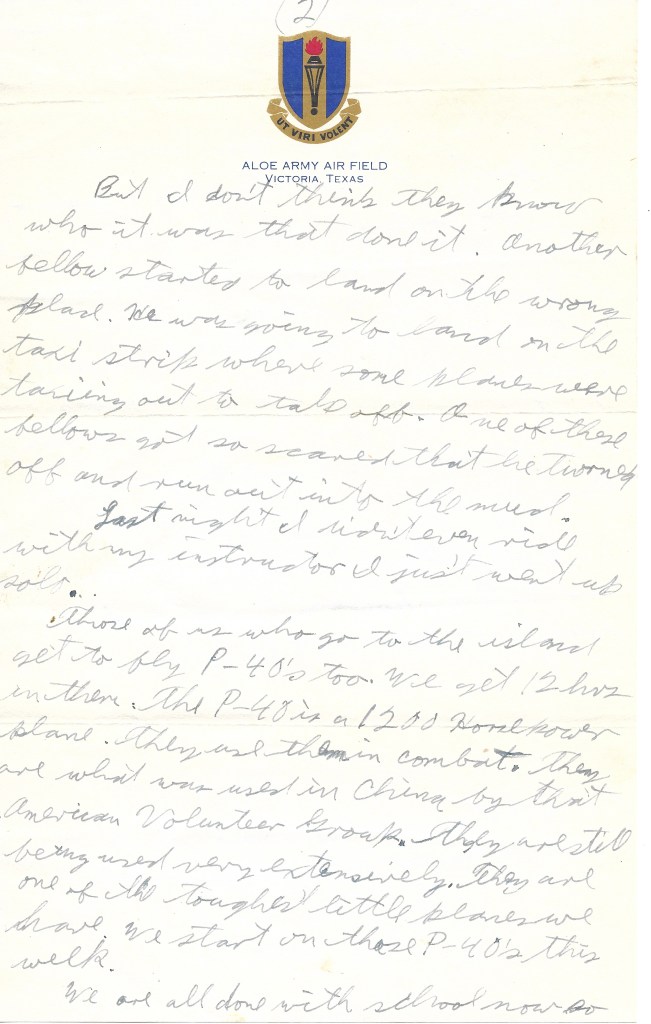 (2)
UT VIRI VOLENT
ALOE ARMY AIR FIELD
VICTORIA, TEXAS
But I don't think they know
who it was that done it. Another
fellow started to land on the wrong
place. He was going to land on the
taxi strip where some planes were
taxiing out to take off. One of these
fellows got so scared that he turned
off and run out into the mud.
Last night I didn't even ride
with my instructor I just went up
solo.
Those of us who go to the island
get to fly P-40's too. We get 12 hrs
in them. The P-40 is a 1200 Horsepower
plane. They use them in combat. They
are what was used in China by that
American Volunteer Group. They are still
being used very extensively. They are
one of the toughest little planes we
have. We start on those P-40's this
week.
We are all done with school now so